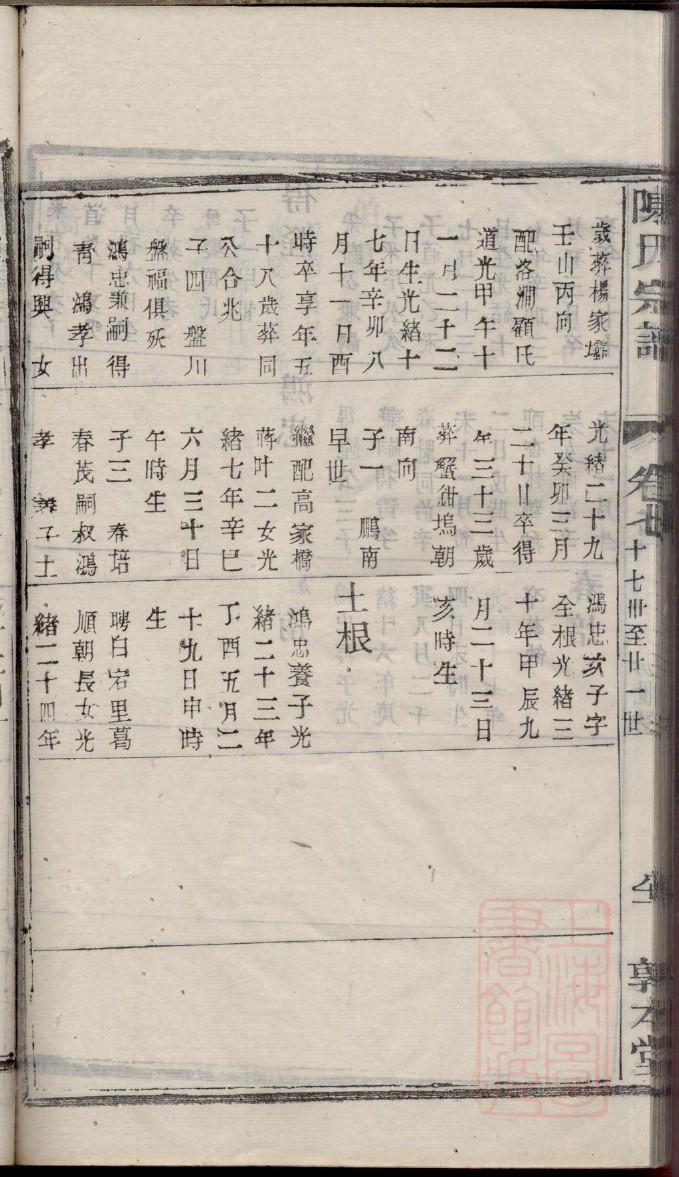 陳氏宗譜
卷七
十七卋至廿一世
敦本堂
歲葬楊家壩
壬山丙向
配洛澗顧氏
道光甲午十
一月二十二
日生光緒十
七年辛卯八
月十一日酉
時卒享年五
十八歲葬同
公合兆
子四 盤川
盤福俱殀
鴻忠兼嗣得
青 鴻孝出
嗣得興 女
光緒二十九
年癸卯三月
二十日卒得
年三十三歲
葬蟹鉗塢朝
南向
子一 鵬南
早世
繼配高家橋
蔣叶二女光
緒七年辛巳
六月三十日
午時生
子三 春培
春茂嗣叔鴻
孝 養子土
鴻忠亥子字
全根光緒三
十年甲辰九
月二十三日
亥時生
土根
鴻忠養子光
緒二十三年
丁酉五月二
十九日申時
生
聘白宕里葛
順朝長女光
緒二十四年
上海圖書館藏